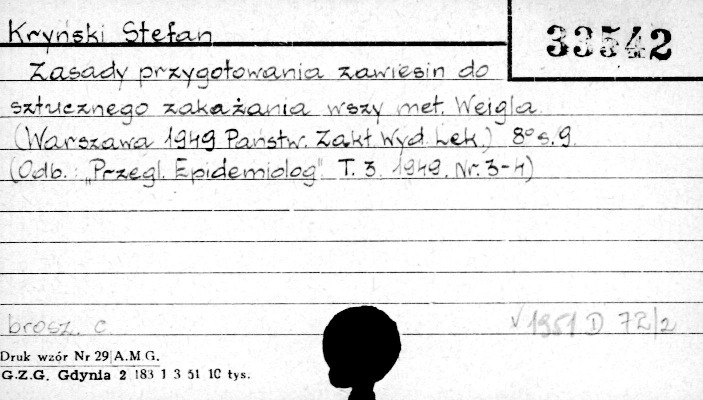 Kryński Stefan
33542
Zasady przygotowania zawiesin do
sztucznego zakażania wszy met. Weigla.
(Warszawa 1949 Państw. Zakł. Wyd. Lek.) 8° s. 9.
(Odb.: „Przegl. Epidemiolog" T. 3. 1949. Nr. 3-4)
brosz. c
√ 1951 D 72/2
Druk wzór Nr 29 A.M.G.
G.Z.G. Gdynia 2 183 1 3 51 10 tys.